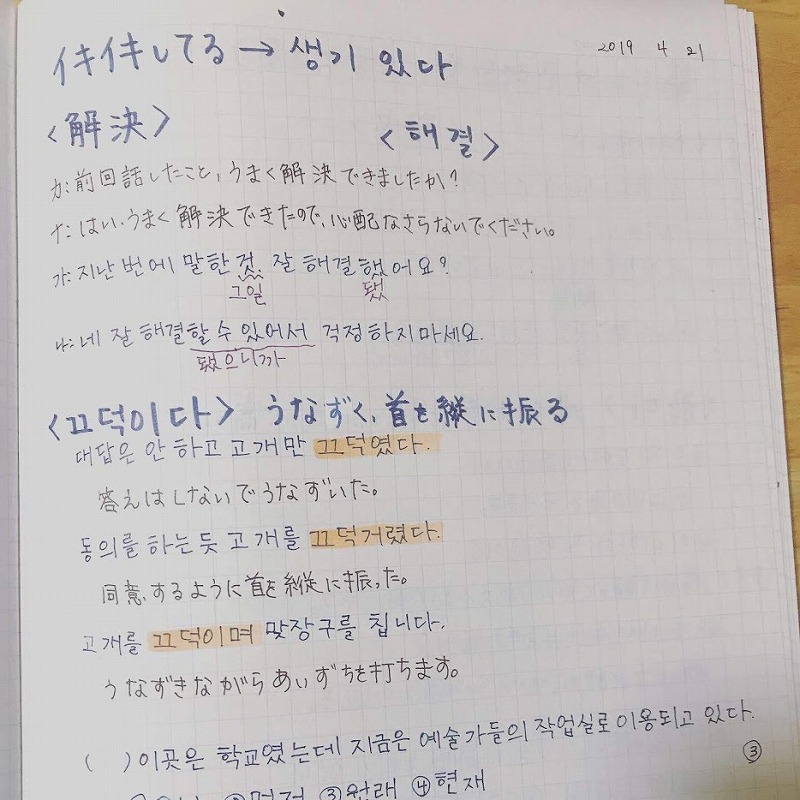 2019 4 21
イキイキしてる → 생기 있다
<解決> <해결>
가: 前回話したこと、うまく解決できましたか?
나: はい、うまく解決できたので、心配なさらないでください。
가: 지난번에 말한 것 잘 해결했어요?
그일 됐
나: 네 잘 해결할 수 있어서 걱정하지마세요.
됐으니까
<끄덕이다> うなずく、首を縦に振る
대답은 안 하고 고개만 끄덕였다.
答えはしないでうなずいた。
동의를 하는듯 고개를 끄덕거렸다.
同意するように首を縦に振った。
고개를 끄덕이며 맞장구를 칩니다.
うなずきながらあいずちを打ちます。
( )이곳은 학교였는데 지금은 예술가들의 작업실로 이용되고 있다.
③
③원래 ④현재